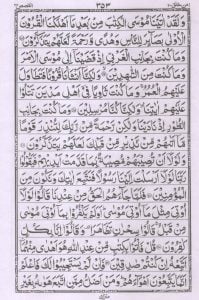 ٣٥٣
وَلَقَدْ اٰتَيْنَا مُوْسَى الْكِتٰبَ مِنْۢ بَعْدِ مَاۤ اَهْلَكْنَا الْقُرُوْنَ
الْاُوْلٰى بَصَآئِرَ لِلنَّاسِ وَهُدًى وَّرَحْمَةً لَّعَلَّهُمْ يَتَذَكَّرُوْنَ
وَمَا كُنْتَ بِجَانِبِ الْغَرْبِيِّ اِذْ قَضَيْنَاۤ اِلٰى مُوْسَى الْاَمْرَ
وَمَا كُنْتَ مِنَ الشّٰهِدِيْنَ وَلٰكِنَّاۤ اَنْشَاْنَا قُرُوْنًا فَتَطَاوَلَ
عَلَيْهِمُ الْعُمُرُ وَمَا كُنْتَ ثَاوِيًا فِيْۤ اَهْلِ مَدْيَنَ تَتْلُوْا
عَلَيْهِمْ اٰيٰتِنَا وَلٰكِنَّا كُنَّا مُرْسِلِيْنَ وَمَا كُنْتَ بِجَانِبِ
الطُّوْرِ اِذْ نَادَيْنَا وَلٰكِنْ رَّحْمَةً مِّنْ رَّبِّكَ لِتُنْذِرَ قَوْمًا
مَّاۤ اَتٰىهُمْ مِّنْ نَّذِيْرٍ مِّنْ قَبْلِكَ لَعَلَّهُمْ يَتَذَكَّرُوْنَ
وَلَوْلَاۤ اَنْ تُصِيْبَهُمْ مُّصِيْبَةٌۢ بِمَا قَدَّمَتْ اَيْدِيْهِمْ فَيَقُوْلُوْا
رَبَّنَا لَوْلَاۤ اَرْسَلْتَ اِلَيْنَا رَسُوْلًا فَنَتَّبِعَ اٰيٰتِكَ وَنَكُوْنَ مِنَ
الْمُؤْمِنِيْنَ فَلَمَّا جَآءَهُمُ الْحَقُّ مِنْ عِنْدِنَا قَالُوْا لَوْلَاۤ
اُوْتِيَ مِثْلَ مَاۤ اُوْتِيَ مُوْسٰى اَوَلَمْ يَكْفُرُوْا بِمَاۤ اُوْتِيَ مُوْسٰى
مِنْ قَبْلُ قَالُوْا سِحْرٰنِ تَظَاهَرَا وَقَالُوْۤا اِنَّا بِكُلٍّ
كٰفِرُوْنَ قُلْ فَاْتُوْا بِكِتٰبٍ مِّنْ عِنْدِ اللّٰهِ هُوَ اَهْدٰى مِنْهُمَاۤ
اَتَّبِعْهُ اِنْ كُنْتُمْ صٰدِقِيْنَ فَاِنْ لَّمْ يَسْتَجِيْبُوْا لَكَ فَاعْلَمْ
اَنَّمَا يَتَّبِعُوْنَ اَهْوَآءَهُمْ وَمَنْ اَضَلُّ مِمَّنِ اتَّبَعَ هَوٰىهُ بِغَيْرِ